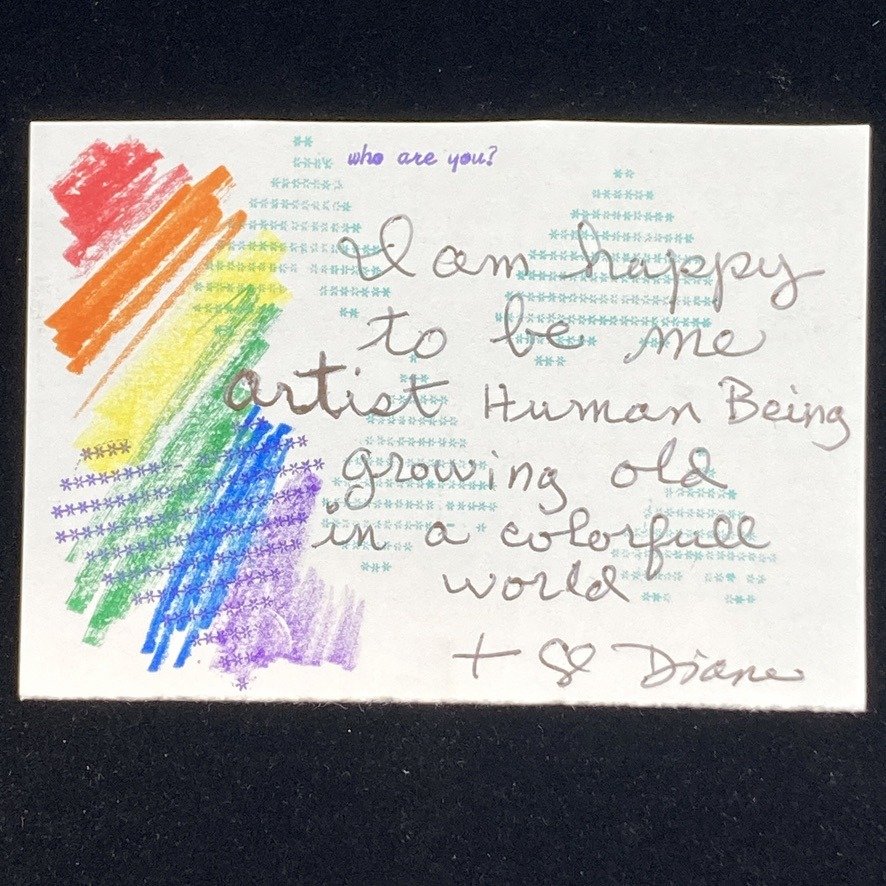 who are you?
I am happy
to be me
artist Human Being
growing old
in a colorfull
world
+ Diane